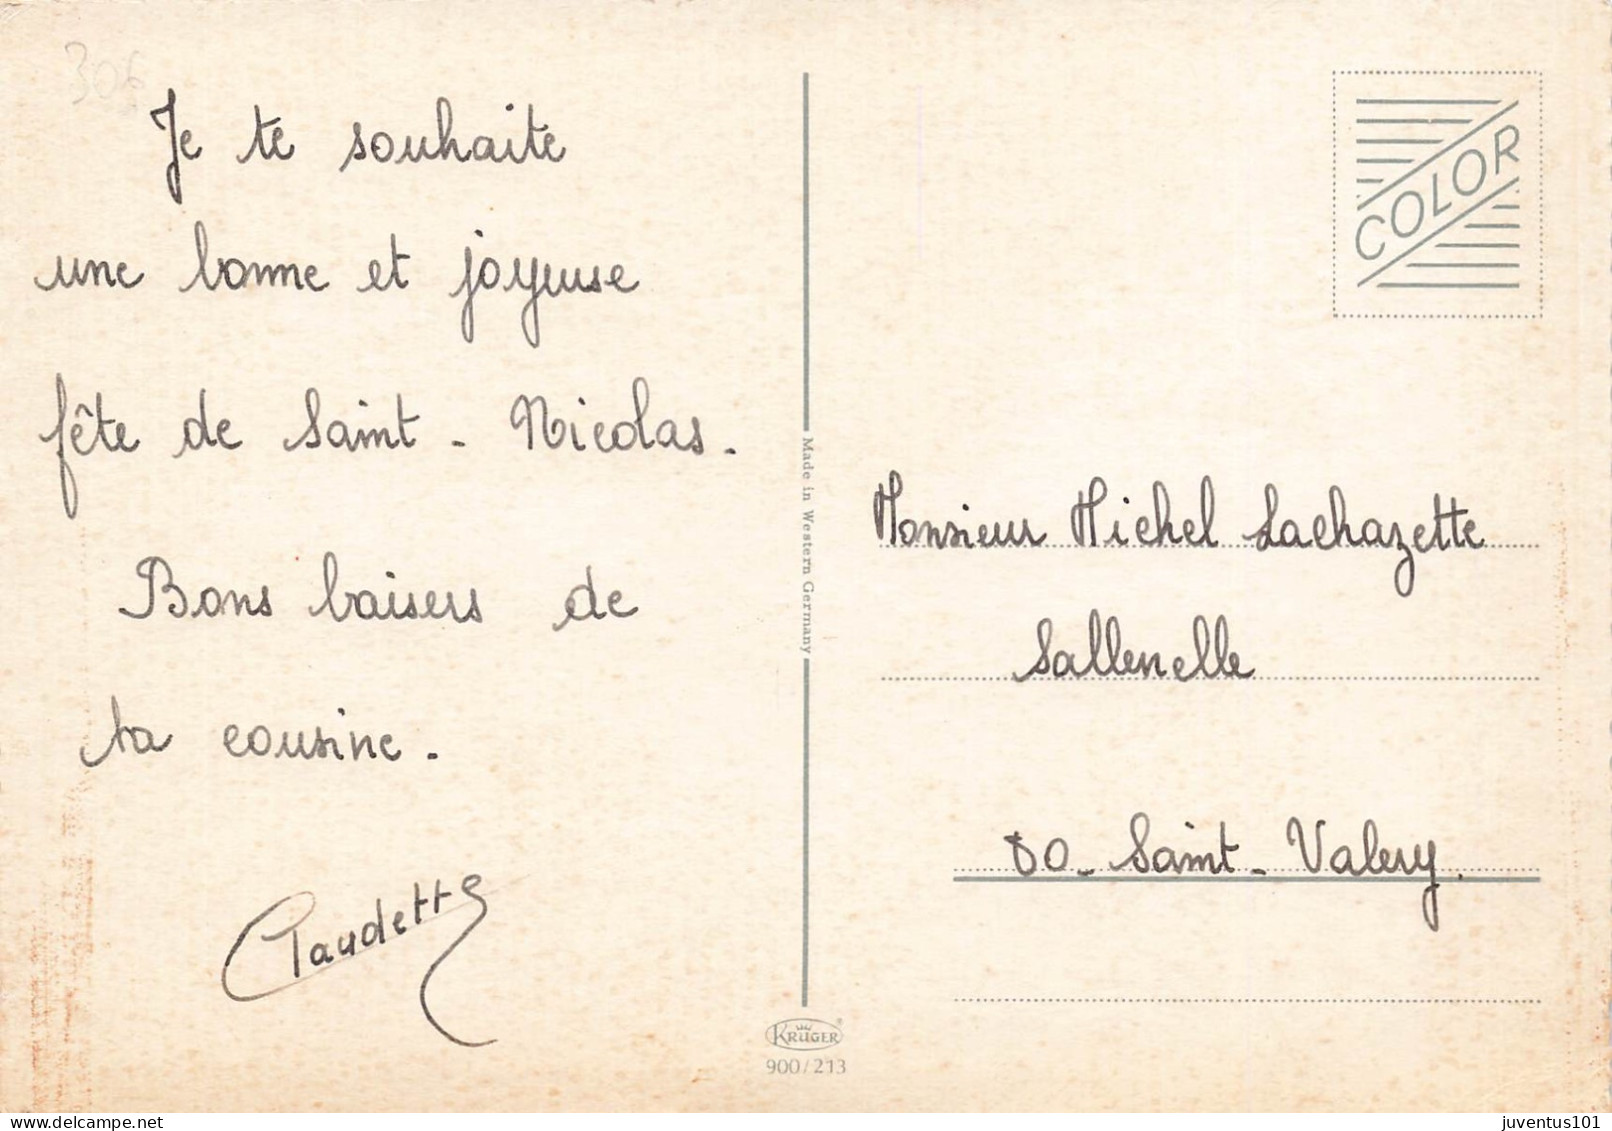 306
Je te souhaite
une bonne et joyeuse
fête de Saint - Nicolas.
Bons baisers de
ta cousine.
Claudette
Made in Western Germany
KRÜGER
900/213
COLOR
Monsieur Michel Lachazette
Sallenelle
80 - Saint - Valery.
juventus101